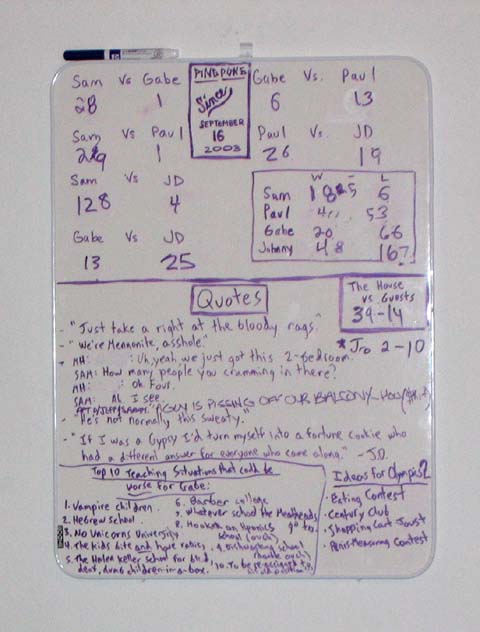 Sam Vs Gabe
28 1
PINGPONG
Since
SEPTEMBER
16
2003
Gabe Vs. Paul
6 13
Sam Vs Paul
1
Paul Vs. JD
26 19
Sam Vs JD
128 4
W L
Sam 6
Paul 53
Gabe 20 66
Johnny 48 167
Gabe Vs JD
13 25
The House
vs Guests
39-14
*Jro 2-10
Quotes
- "Just take a right at the bloody rags."
- "We're Mennonite, asshole."
- MH: Uh, yeah, we just got this 2-bedroom.
SAM: How many people you cramming in there?
MH: Oh Four.
SAM: Ah I see.
"A GUY IS PISSING OFF OUR BALCONY-
- "He's not normally this sweaty."
- "If I was a Gypsy I'd turn myself into a fortune cookie who
had a different answer for everyone who came along" -J.D.
Top 10 Teaching Situations that could be
worse for Gabe:
1. Vampire children.
2. Hebrew School.
3. No Unicorns University
4. The kids bite and have rabies.
5. The Helen Keller School for blind,
deaf, dumb children-in-a-box.
6. Barber college
7. Whatever school the Meatheads
go to.
8. Hooked on Phonics
School (ouch)
9. School
10. To be re-assigned to
old position!!
Ideas for Olympics?
• Eating Contest
• Century Club
• Shopping Cart Joust
• Penis Measuring Contest